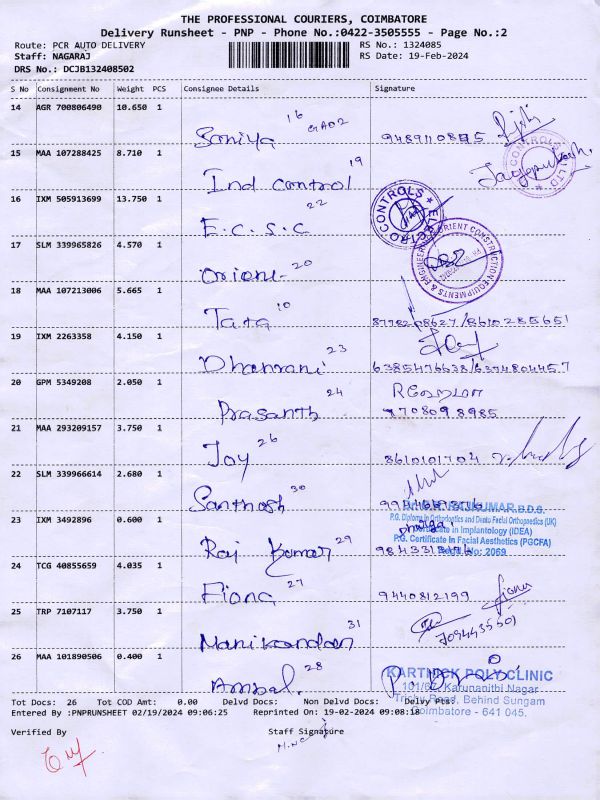 THE PROFESSIONAL COURIERS, COIMBATORE
Delivery Runsheet - PNP - Phone No.:0422-3505555 - Page No.:2
Route: PCR AUTO DELIVERY RS No.: 1324085
Staff: NAGARAJ RS Date: 19-Feb-2024
DRS No.: DCJB132408502
S No Consignment No Weight PCS Consignee Details Signature
14 AGR 700806490 10.650 1
Soniya 16
15 MAA 107288425 8.710 1
Ind control 19
16 IXM 505913699 13.750 1
E.C.S.C 22
17 SLM 339965826 4.570 1
Orient 20
18 MAA 107213006 5.665 1
Tara 10 /8610285651
19 IXM 2263358 4.150 1
Dhanrani 23
20 GPM 5349208 2.050 1
Prasanth 24
21 MAA 293209157 3.750 1
Joy 26 8610101704
22 SLM 339966614 2.680 1
Santhosh 30
P.G. Diploma in Orthodontics and Dento Facial Orthopaedics (UK)
Certificate in Implantology (IDEA)
P.G. Certificate In Facial Aesthetics (PGCFA)
No: 2069
23 IXM 3492896 0.600 1
Raj Kumar 29
24 TCG 40855659 4.035 1
Fiona 27 9440812199
25 TRP 7107117 3.750 1
Manikandan 31
26 MAA 101890506 0.400 1
Ambal. 28
KARTHICK POLY CLINIC
101/62, Karunanithi Nagar
Trichy Road, Behind Sungam
Coimbatore - 641 045.
Tot Docs: 26 Tot COD Amt: 0.00 Delvd Docs: Non Delvd Docs: Delvy Pts:
Entered By :PNPRUNSHEET 02/19/2024 09:06:25 Reprinted On: 19-02-2024 09:08:18
Verified By Staff Signature